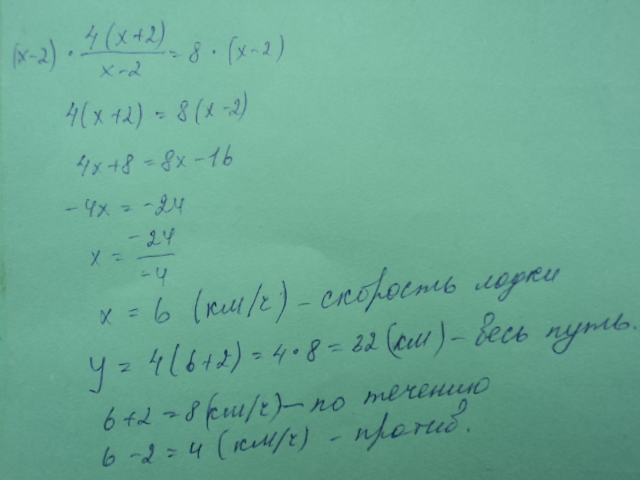 (x-2) · 4(x+2)/x-2 = 8 · (x-2)
4(x+2) = 8(x-2)
4x+8 = 8x-16
-4x = -24
x = -24/-4
x = 6 (км/ч) - скорость лодки
y = 4(6+2) = 4·8 = 32 (км) - весь путь.
6+2 = 8 (км/ч) - по течению
6-2 = 4 (км/ч) - против.